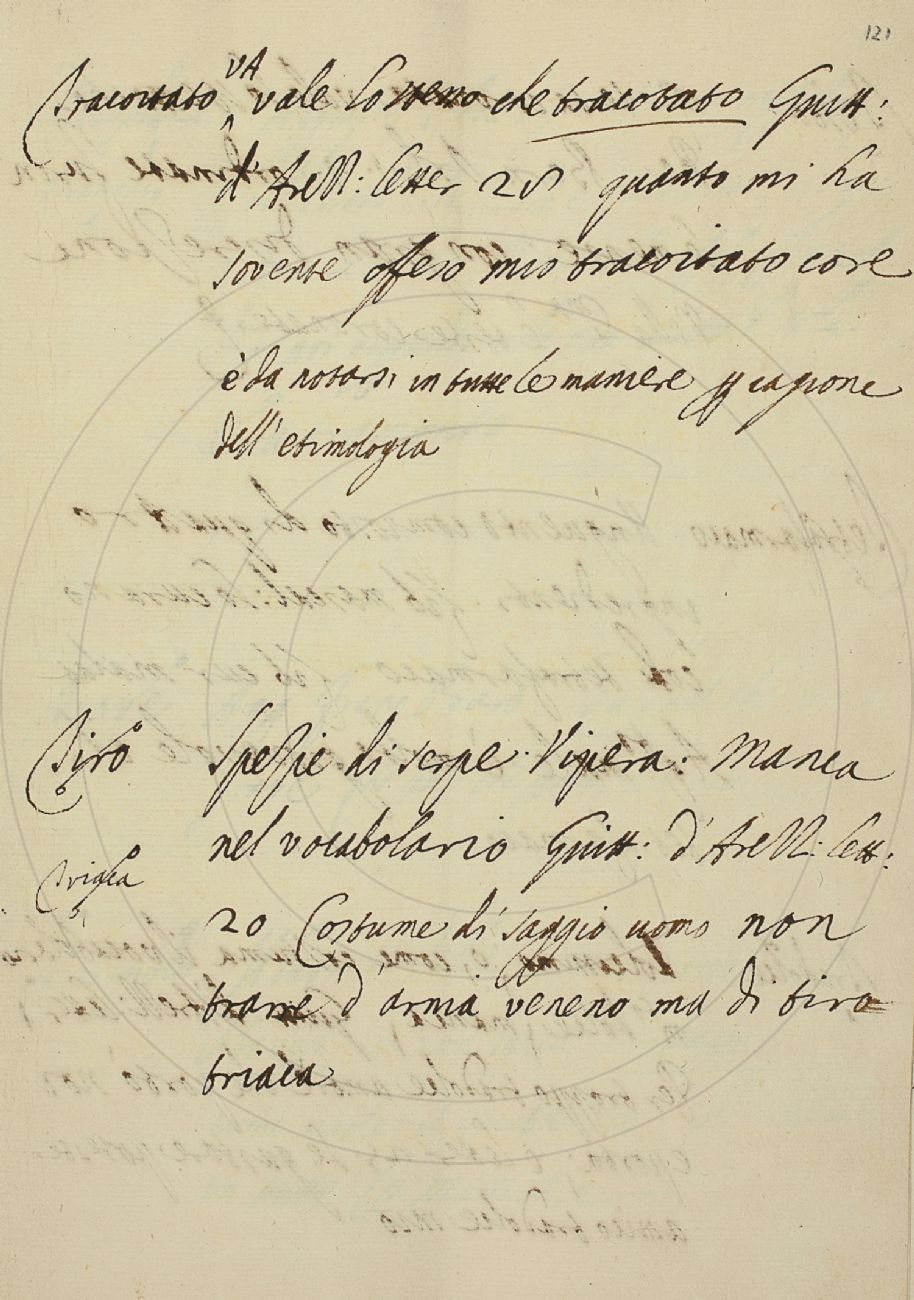 121
Tracoitato VA vale lo stesso che tracotato Guitt:
d'Arezz: letter 28 quanto mi ha
sovente offeso mio tracoitato core
è da notarsi in tutte le maniere p cagione
dell'etimologia
Tiro Spezie di serpe. Vipera: Manca
nel vocabolario Guitt: d'Arezz: lett:
Triaca
20 Costume di saggio uomo non
trarre d'arma veneno ma di tiro=
triaca